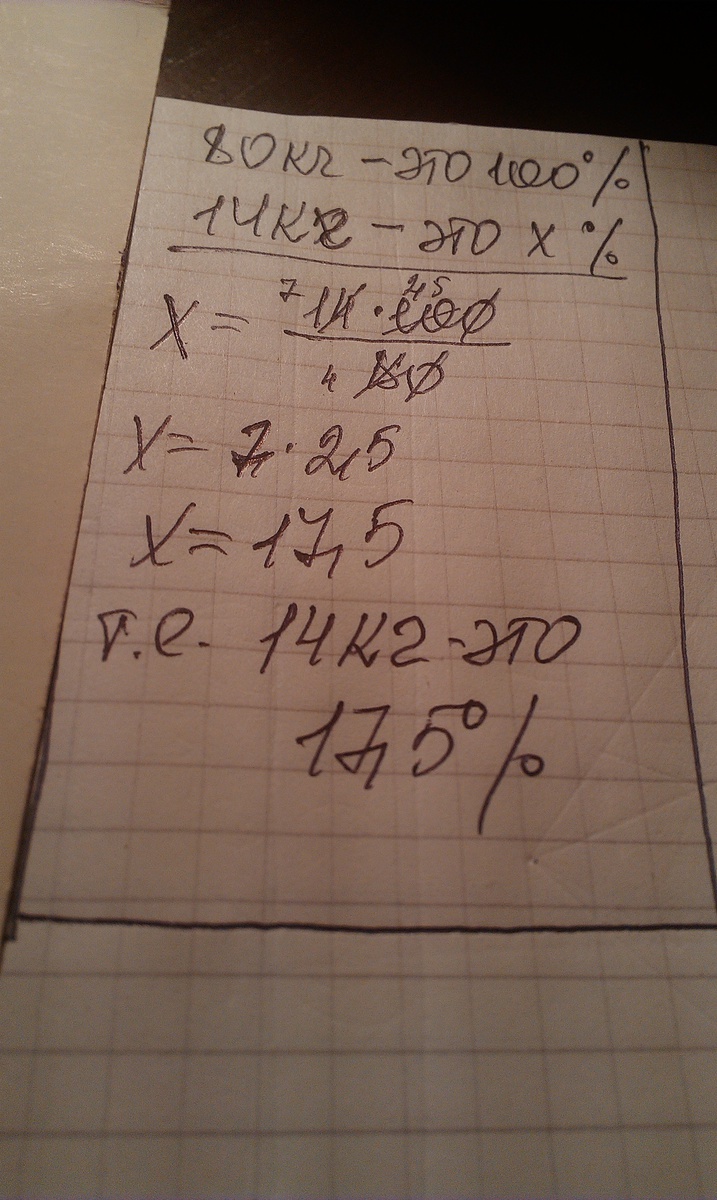 80кг - это 100%
14кг - это x %
7 14 · 100 2,5
x = ───
4 80
x = 7 · 2,5
x = 17,5
т.е. 14кг - это
17,5%